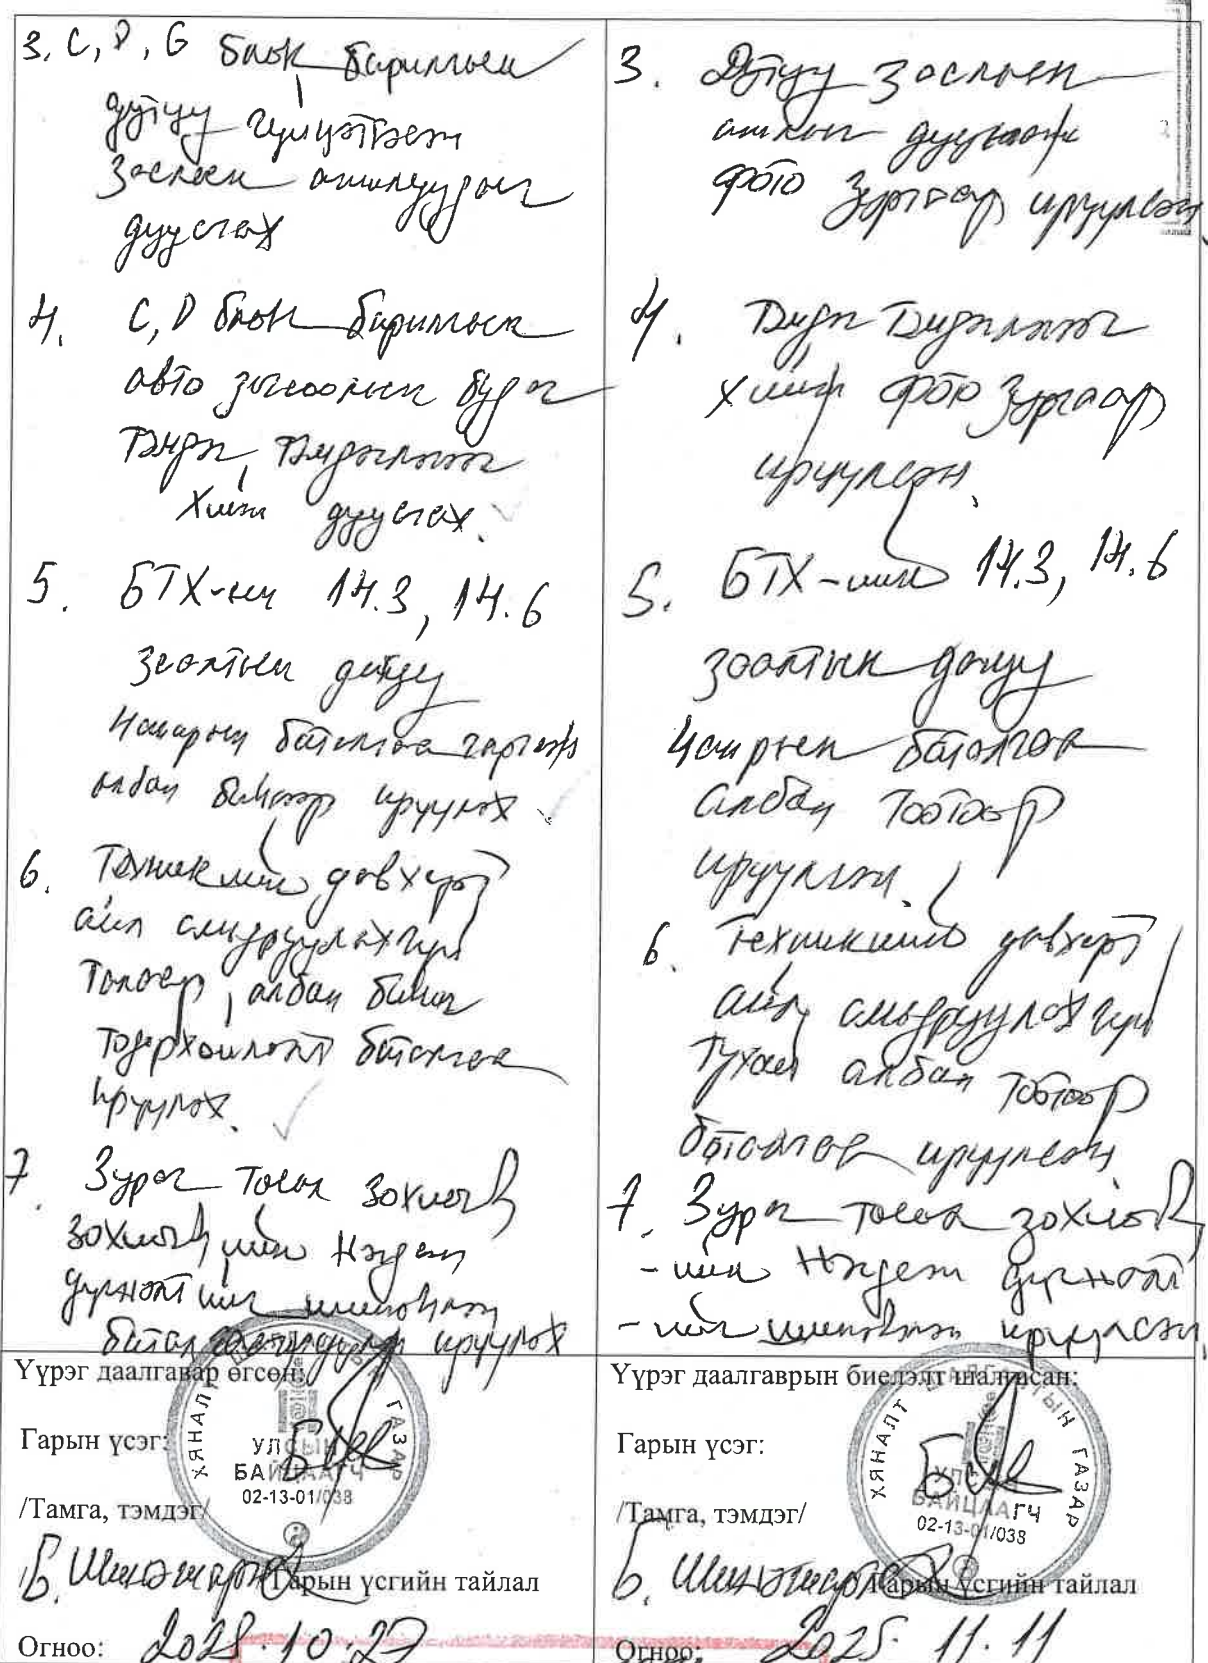 3. C, D, G блок барилгын
дутуу гүйцэтгэсэн
заслын ажлуудыг
дуусгах
4. C, D блок барилгын
авто зогсоолын будаг
тэмдэг, тэмдэглэгээг
хийж дуусгах.
5. БТХ-ны 14.3, 14.6
заалтын дагуу
чанарын баталгаа гаргаж
албан бичгээр ирүүлэх
6. Техникийн давхарт
айл амьдруулахгүй
талаар, албан бичиг
тодорхойлолт баталгаа
ирүүлэх.
7. Зураг төсөл зохиогч
зохиогчийн нэгдсэн
дүгнэлтийг шинэчлэн
ирүүлэх
Үүрэг даалгавар өгсөн:
Гарын үсэг:
/Тамга, тэмдэг/
Гарын үсгийн тайлал
Огноо: 10.27
ХЯНАЛТ ШАЛГАЛТЫН ГАЗАР
УЛСЫН
БАЙЦААГЧ
02-13-01/038
3. Дутуу заслын
ажлыг дуусгаж
фото зургаар ирүүлсэн.
4. Тэмдэг тэмдэглэгээг
хийж фото зургаар
ирүүлсэн.
5. БТХ-ийн 14.3, 14.6
заалтын дагуу
чанарын баталгаа
албан тоотоор
ирүүлсэн.
6. Техникийн давхарт
айл амьдруулахгүй
тухай албан тоотоор
баталгаа ирүүлсэн
7. Зураг төсөл зохиогч
-ийн нэгдсэн дүгнэлт
-ийг шинэчлэн ирүүлсэн.
Үүрэг даалгаврын биелэлт шалгасан:
Гарын үсэг:
/Тамга, тэмдэг/
Гарын үсгийн тайлал
Огноо: 2025. 11. 11
ХЯНАЛТ ШАЛГАЛТЫН ГАЗАР
УЛСЫН
БАЙЦААГЧ
02-13-01/038